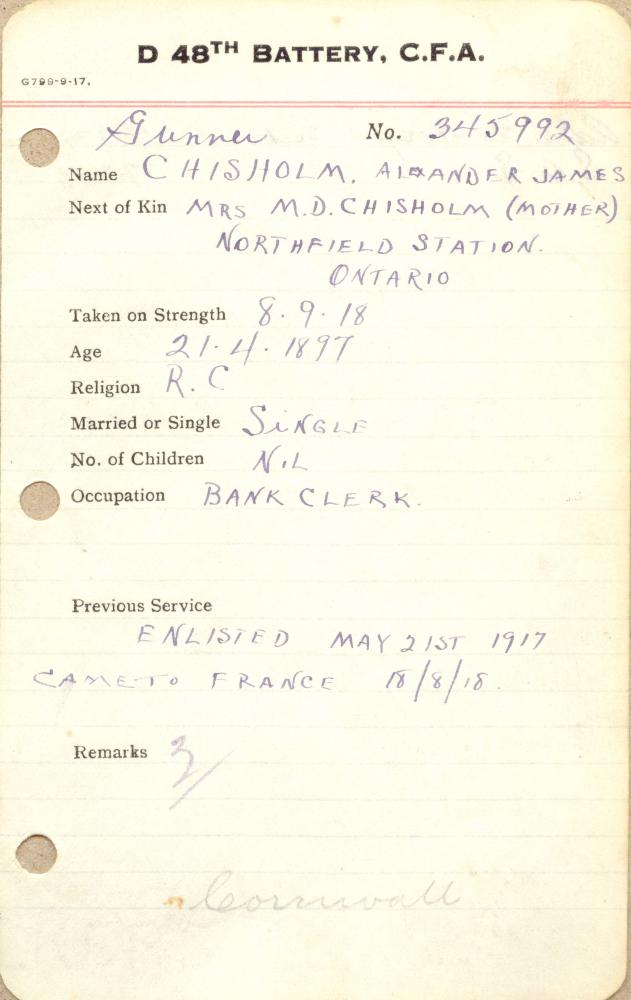 D 48TH BATTERY, C.F.A.
G799-9-17.
Gunner No. 345992
Name CHISHOLM, ALEXANDER JAMES
Next of Kin MRS M.D. CHISHOLM (MOTHER)
NORTHFIELD STATION.
ONTARIO
Taken on Strength 8.9.18
Age 21.4.1897
Religion R.C
Married or Single SINGLE
No. of Children NIL
Occupation BANK CLERK.
Previous Service
ENLISTED MAY 21ST 1917
CAME TO FRANCE 18/8/18.
Remarks 3/
Cornwall